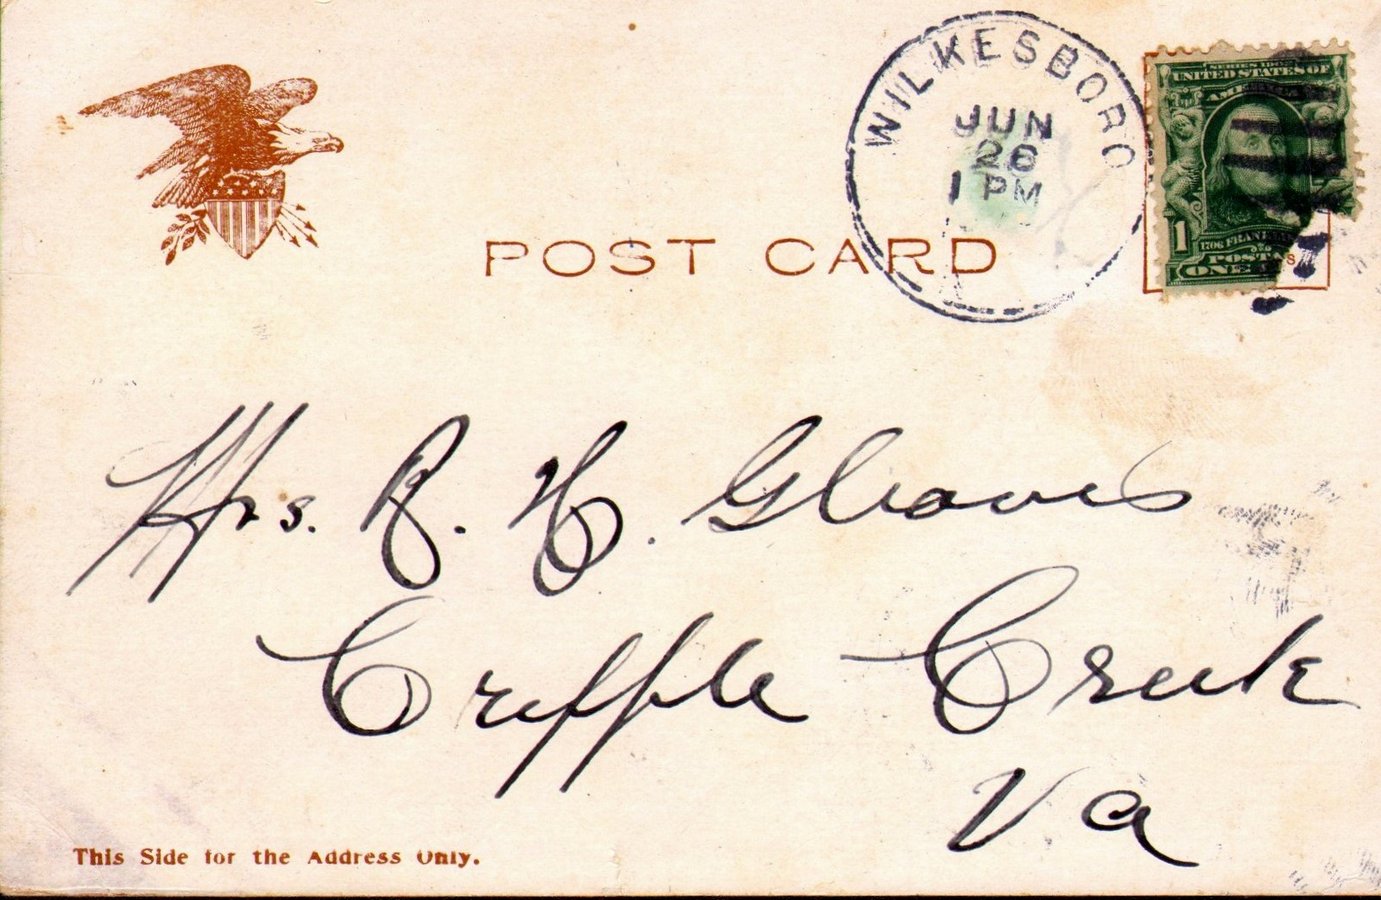 WILKESBORO
JUN
26
1 PM
SERIES 1902
UNITED STATES OF
AMERICA
1
1706 FRANKLIN
POST
ONE
POST CARD
Mrs. R. H. Gleaves
Cripple Creek
Va
This Side for the Address Only.